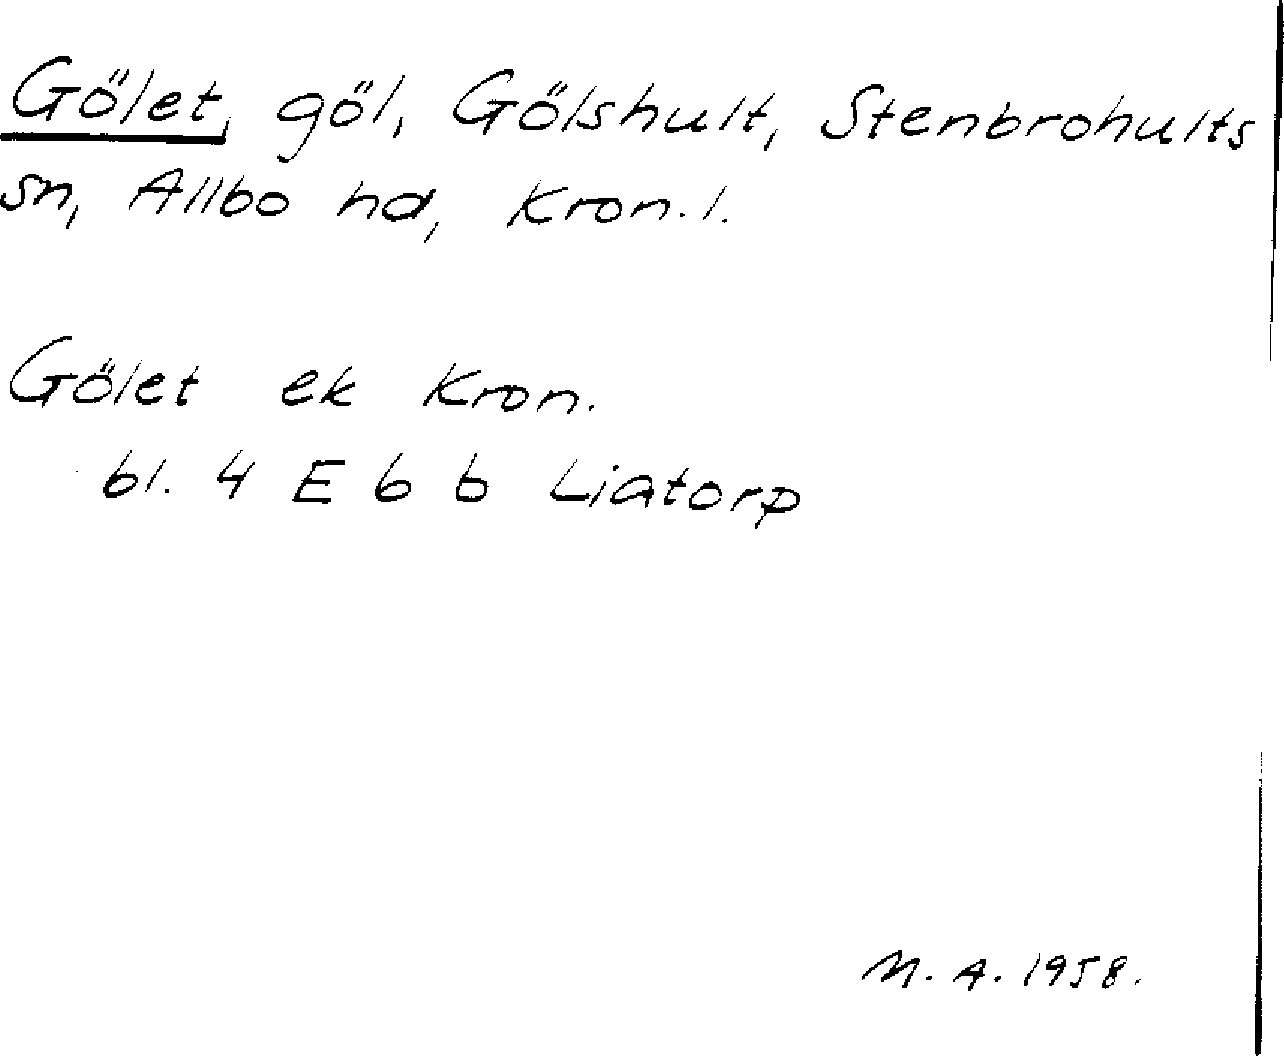 Gölet, göl, Gölshult, Stenbrohults
sn, Allbo hd, Kron. l.
Gölet ek Kron.
bl. 4 E 6 b Liatorp
M. A. 1958.